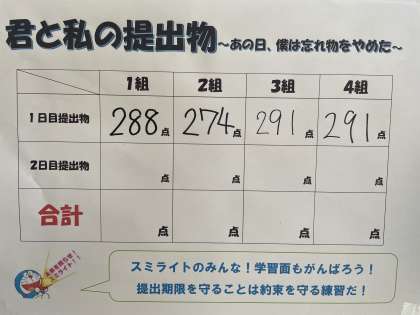 君と私の提出物～あの日、僕は忘れ物をやめた～
1組 2組 3組 4組
1日目提出物 288点 274点 291点 291点
2日目提出物 点 点 点 点
合計 点 点 点 点
スミライトのみんな!学習面もがんばろう!
提出期限を守ることは約束を守る練習だ!